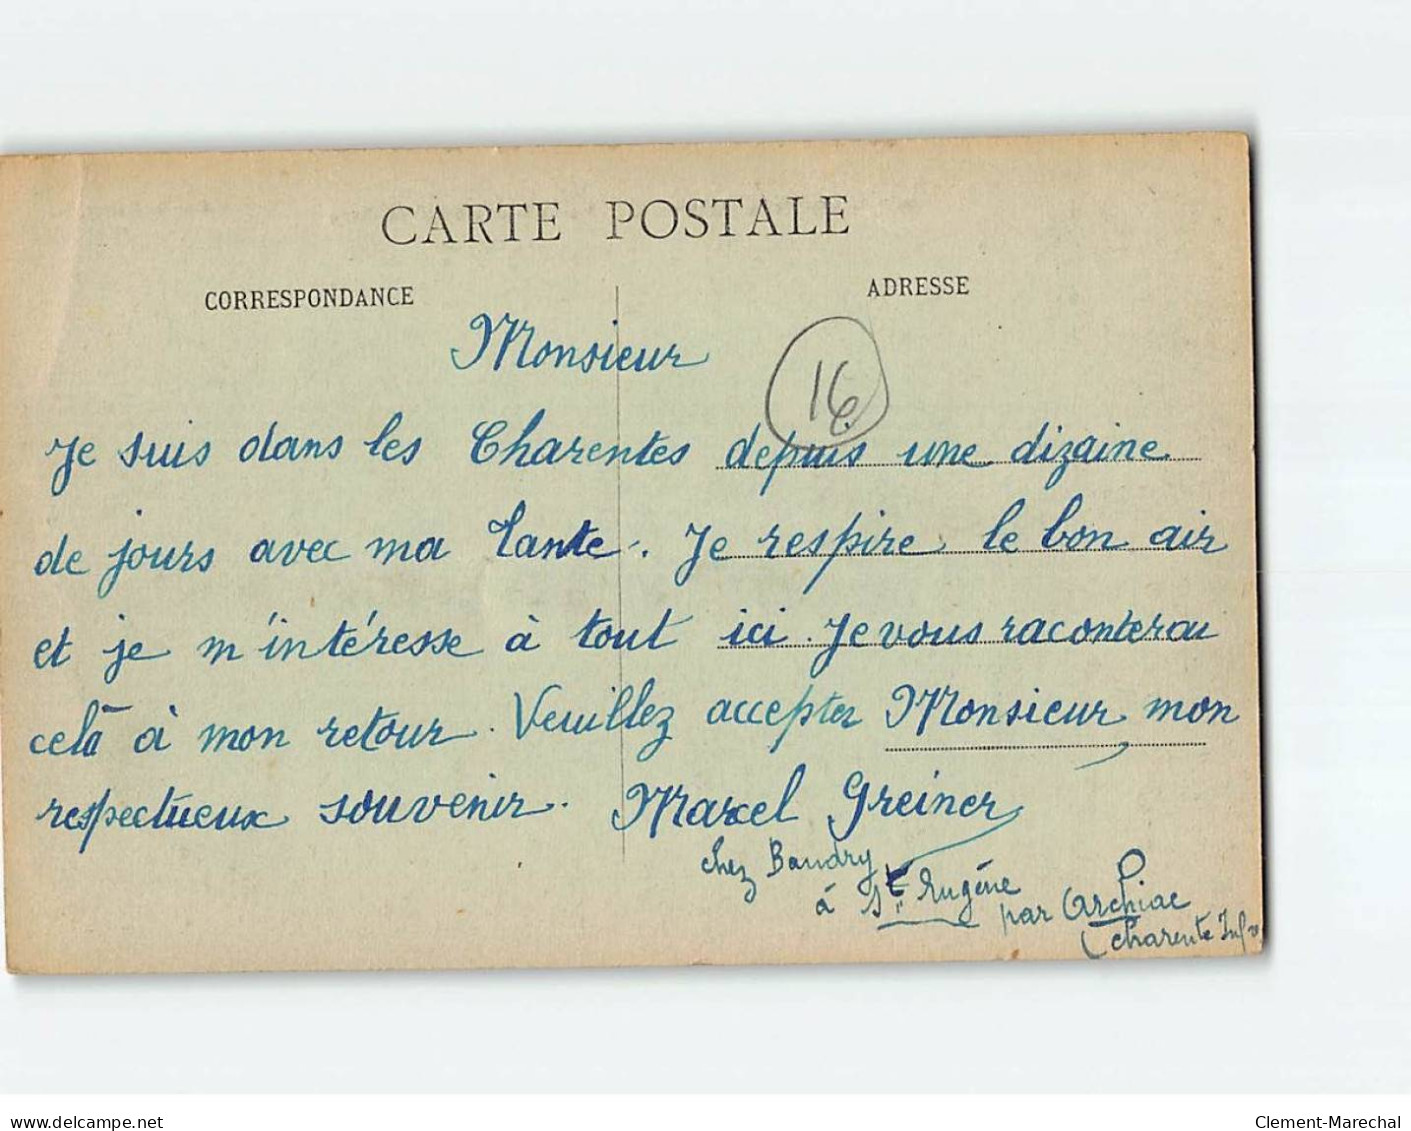 CARTE POSTALE
CORRESPONDANCE
ADRESSE
16
Monsieur
Je suis dans les Charentes depuis une dizaine
de jours avec ma tante. Je respire le bon air
et je m'intéresse à tout ici. Je vous raconterai
celà à mon retour. Veuillez accepter Monsieur, mon
respectueux souvenir. Marcel Greiner
chez Baudry
à St Eugène
par Archiac
Charente Infre
delcampe.net
Clement-Marechal